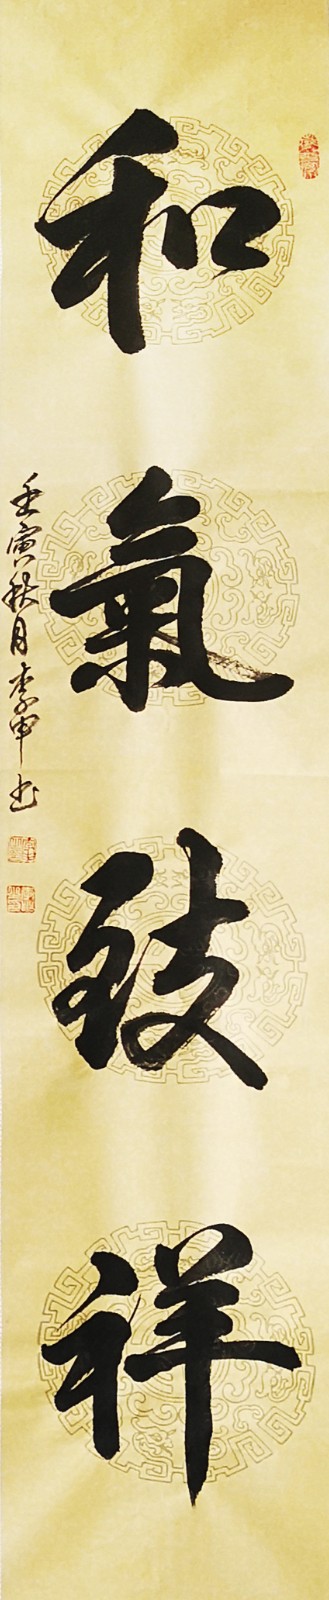 和氣致祥
壬寅秋月李申书